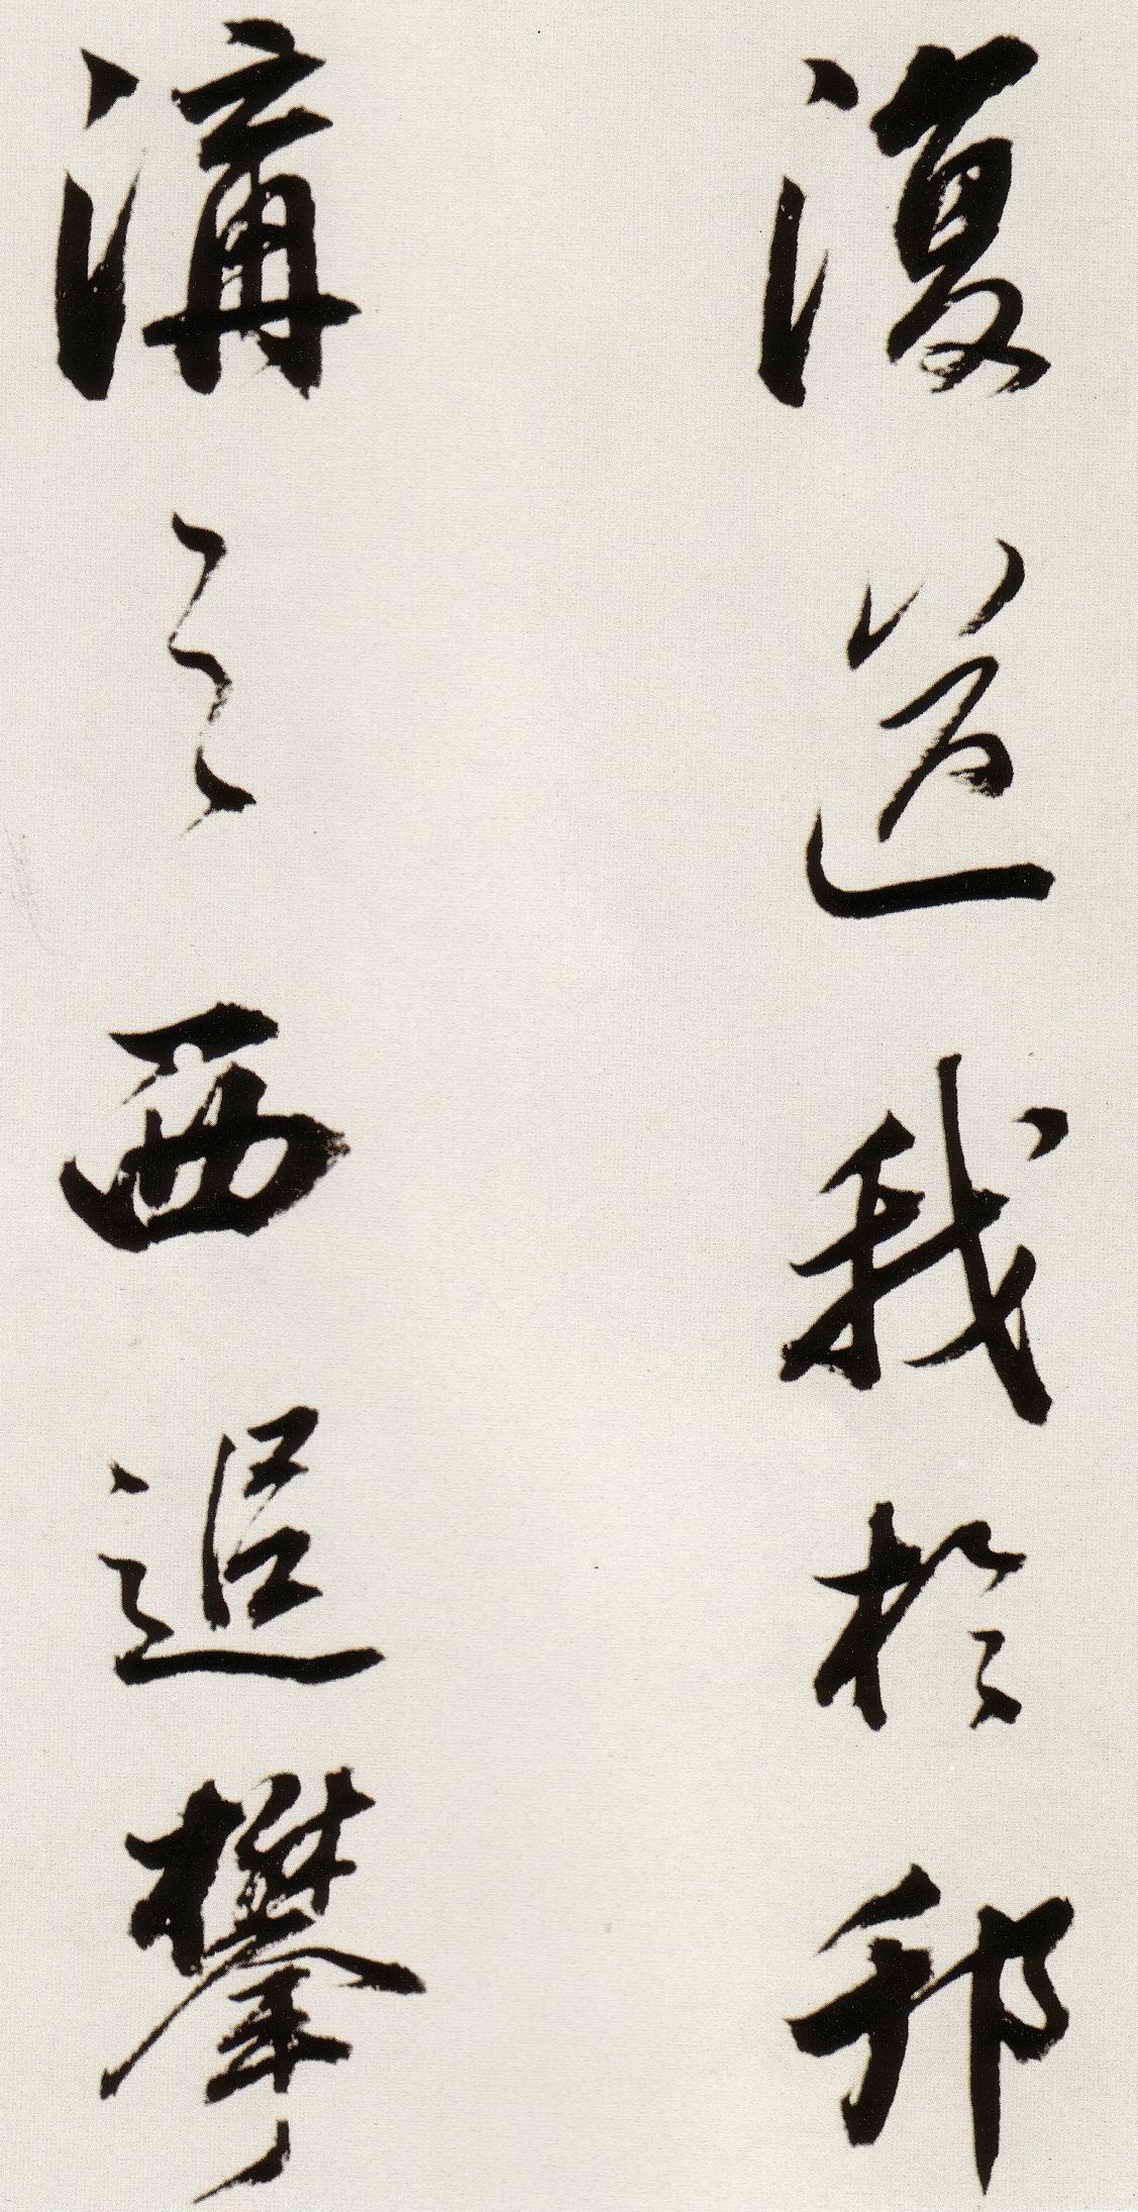 復送我於邗
溝之西追攀